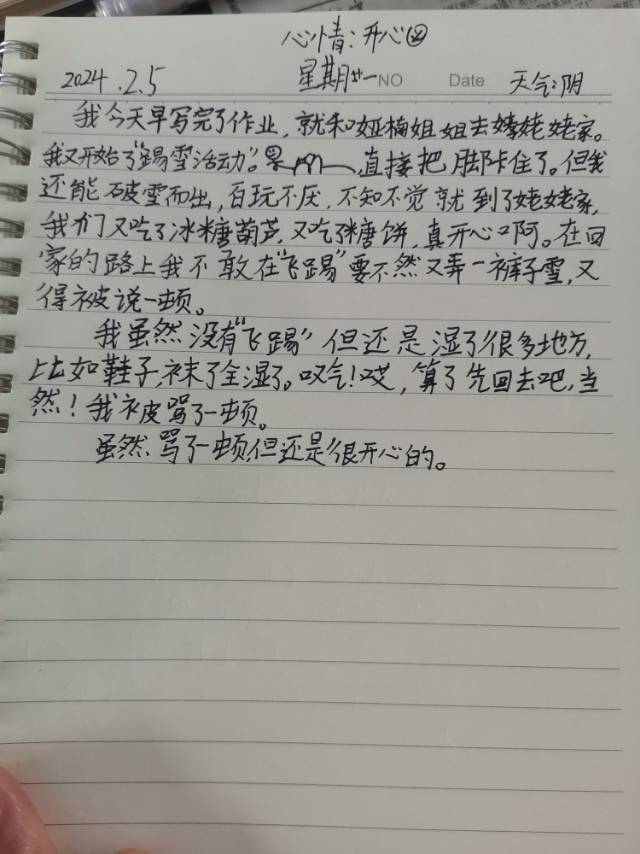 心情:开心
2024.2.5 星期一 NO Date 天气:阴
我今天早写完了作业,就和娅楠姐姐去姥姥家。
我又开始了“踢雪活动”。直接把脚卡住了。但我
还能破雪而出,百玩不厌,不知不觉就到了姥姥家,
我们又吃了冰糖葫芦,又吃了糖饼,真开心啊。在回
家的路上我不敢在“飞踢”要不然又弄一裤子雪,又
得被说一顿。
我虽然没有“飞踢”但还是湿了很多地方,
比如鞋子,袜了全湿了。叹气!哎,算了先回去吧,当
然!我被骂了一顿。
虽然骂了一顿,但还是很开心的。